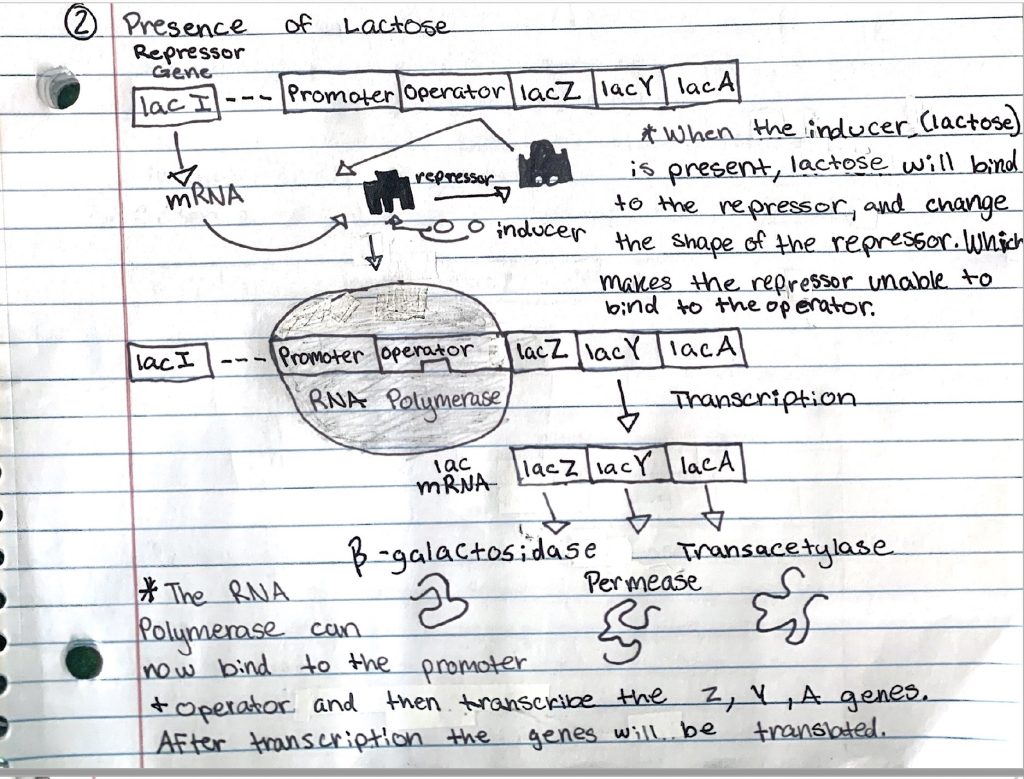 ② Presence of Lactose
Repressor
Gene
lac I --- Promoter Operator lacZ lacY lacA
mRNA
repressor
inducer
* When the inducer (lactose)
is present, lactose will bind
to the repressor, and change
the shape of the repressor. Which
makes the repressor unable to
bind to the operator.
lac I --- Promoter operator lacZ lacY lacA
RNA Polymerase
Transcription
lac
mRNA
lacZ lacY lacA
β-galactosidase
Permease
Transacetylase
* The RNA
Polymerase can
now bind to the promoter
+ operator and then transcribe the Z, Y, A genes.
After transcription the genes will be translated.